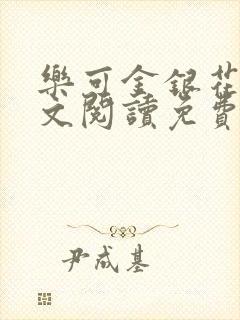 樂可金銀花
文閱讀免費
尹成基